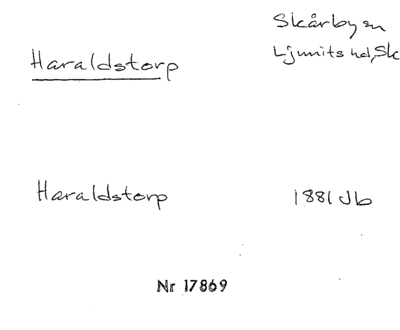 Haraldstorp
Skårby sn
Ljunits hd, Sk
Haraldstorp
1881 Jb
Nr 17869